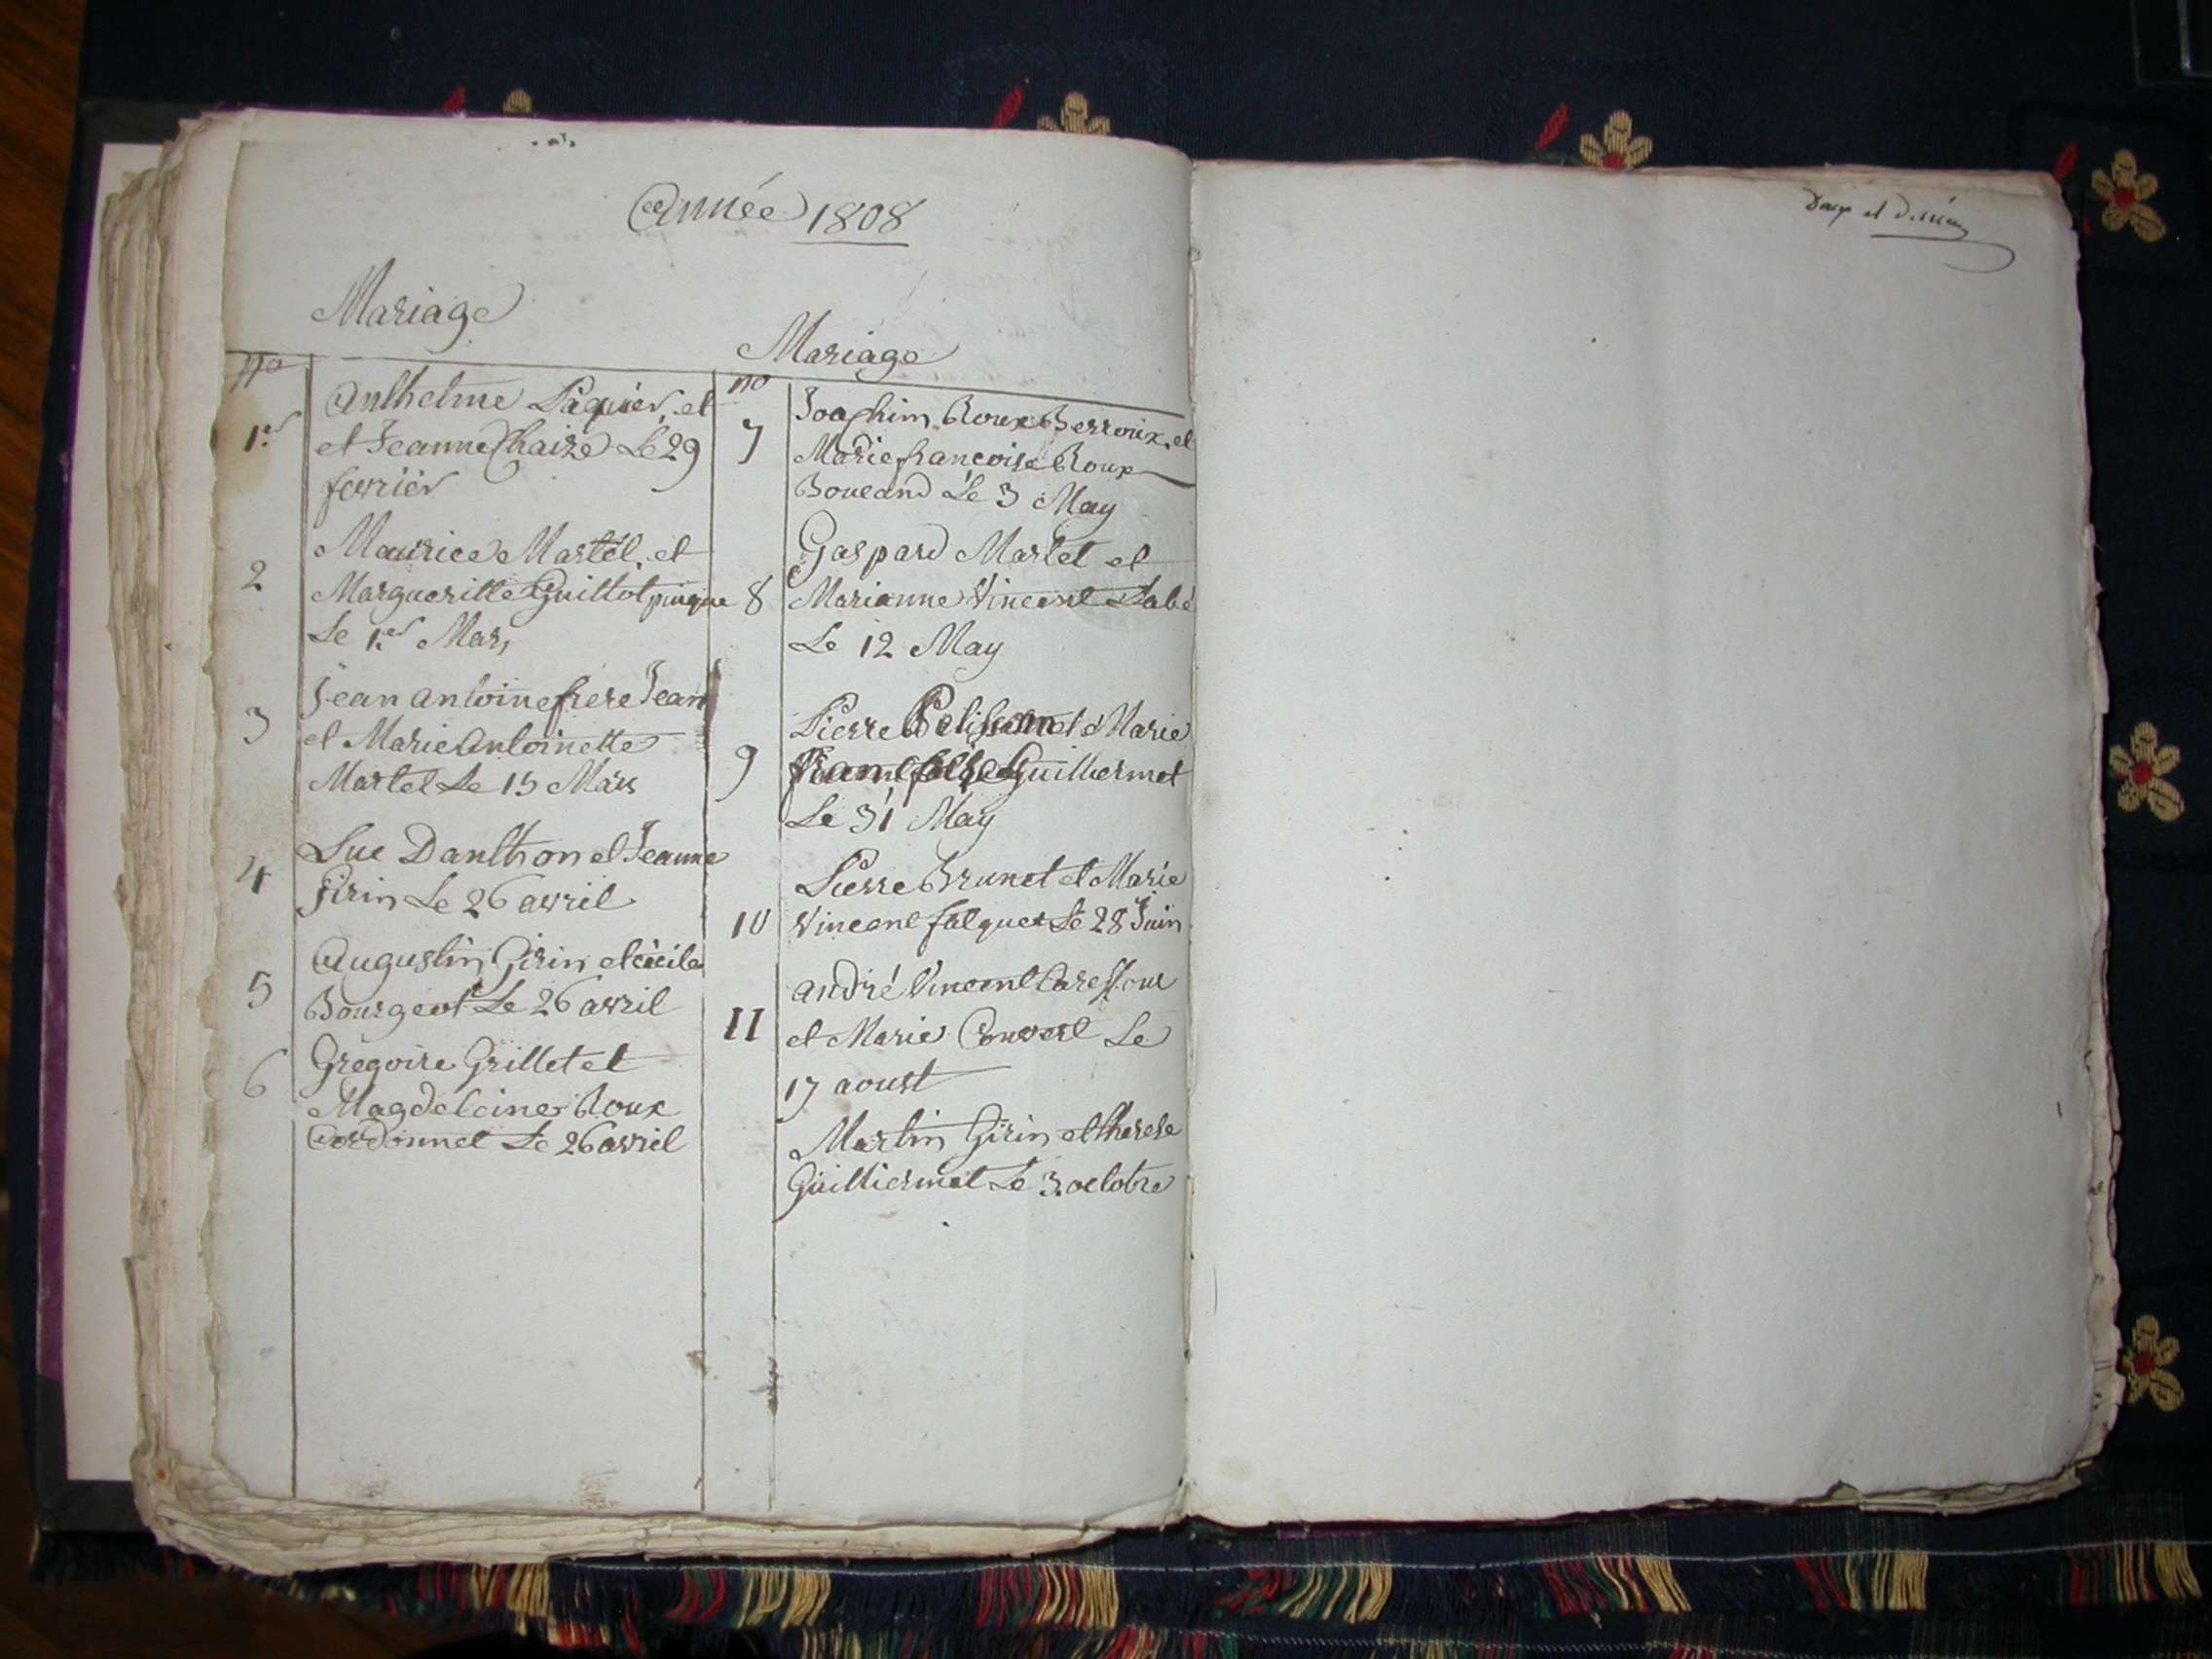 Année 1808
Mariage
no
1er
Anthelme Paquier, et
et Jeanne Chaize Le 29
fevrier
2
Maurice Martel, et
Margueritte Guillot pingue
Le 1er Mars
3
Jean antoine frere Jean
et Marie Antoinette
Martel Le 15 Mars
4
Luc Danthon et Jeanne
Girin Le 26 avril
5
Augustin Girin et cécile
Bourgeot Le 26 avril
6
Grégoire Grillet et
Magdeleine Roux
Cordonnet Le 26 avril
Mariage
no
7
Joachim Roux Berroux, et
Marie francoise Roux
Boueand Le 3 May
Gaspard Martel et
8 Marianne Vincent Labé
Le 12 May
Pierre Pelisson et Marie
9 Guilhermet
Le 31 May
Pierre Brunet et Marie
10 Vincent falquet Le 28 Juin
André Vincent
11 et Marie Convert Le
17 aoust
Martin Girin et therese
Guilliermet Le 3. octobre